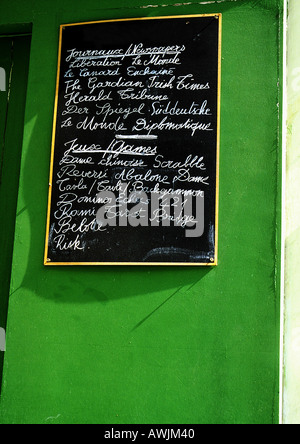 Journaux/Newspapers
Libération Le Monde
Le Canard Enchainé
The Gardian Irish Times
Herald Tribune
Der Spiegel Süddeutsche
Le Monde Diplomatique
Jeux/Games
Dame Chinoise Scrabble
Reversi Abalone Dame
Carta/Cards Backgammon
Domino Echecs 421
Rami Bridge
Belote
Risk
alamy
Image ID: AWJM40
www.alamy.com